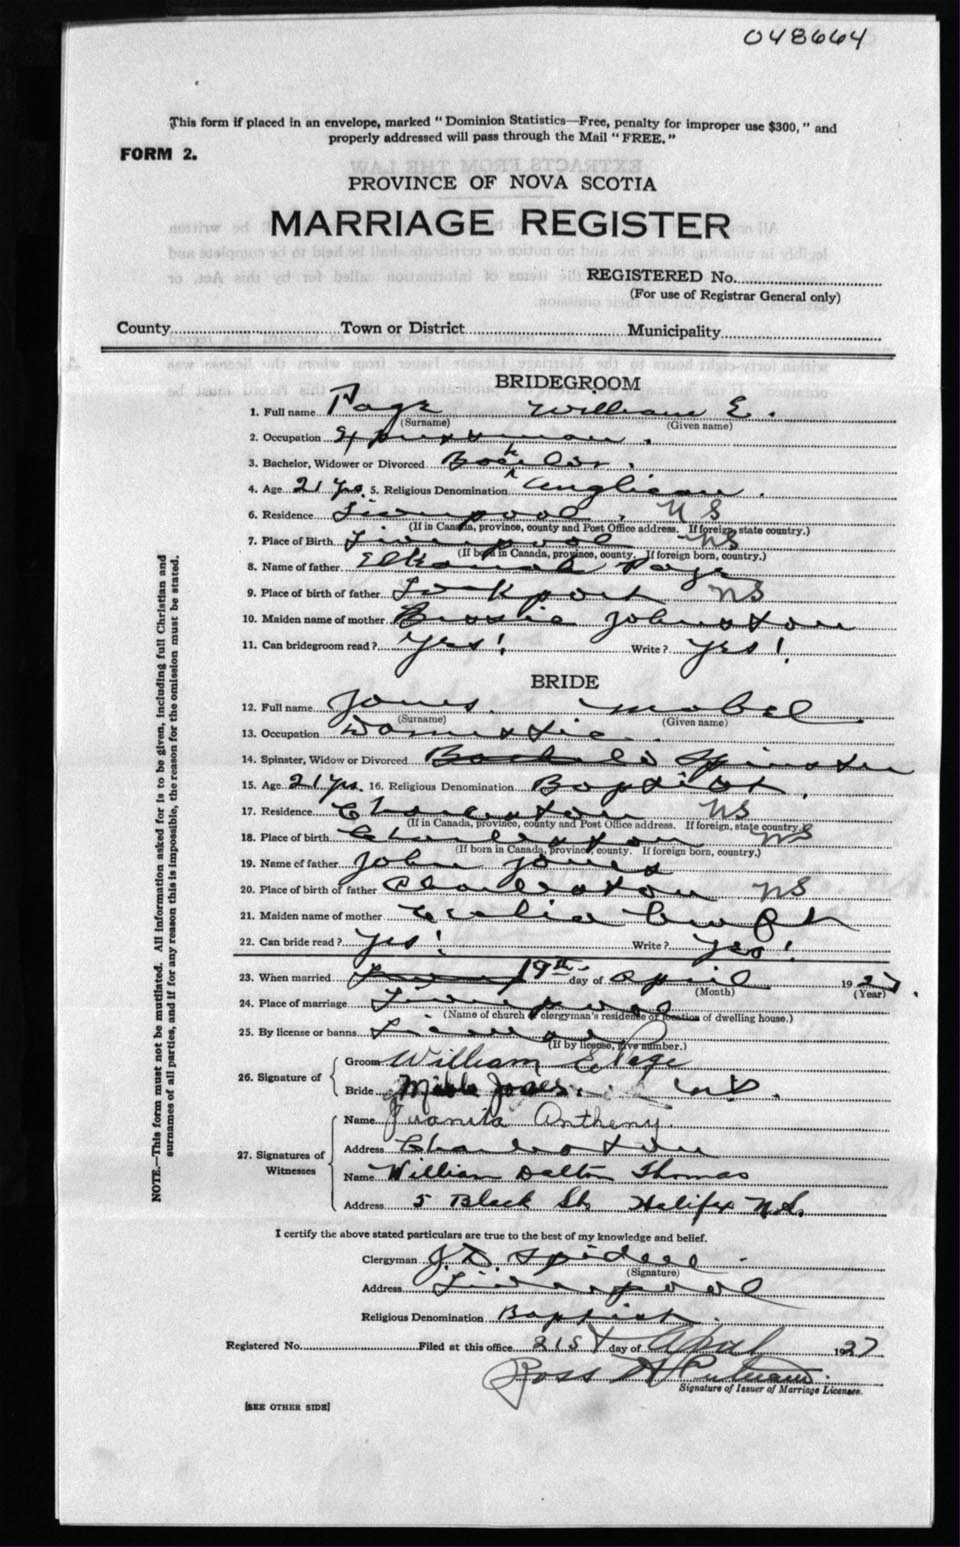 048664
This form if placed in an envelope, marked "Dominion Statistics—Free, penalty for improper use $300," and
properly addressed will pass through the Mail "FREE."
FORM 2.
PROVINCE OF NOVA SCOTIA
MARRIAGE REGISTER
REGISTERED No.
(For use of Registrar General only)
County Town or District Municipality
BRIDEGROOM
1. Full name Page William E.
(Surname) (Given name)
2. Occupation
3. Bachelor, Widower or Divorced Bachelor.
4. Age 21 yrs. 5. Religious Denomination Anglican.
6. Residence Liverpool, NS
(If in Canada, province, county and Post Office address. If foreign, state country.)
7. Place of Birth Liverpool NS
(If born in Canada, province, county. If foreign born, country.)
8. Name of father Elkanah Page
9. Place of birth of father Lockport NS
10. Maiden name of mother Bessie Johnston
11. Can bridegroom read? Yes! Write? Yes!
BRIDE
12. Full name Jones. Mabel.
(Surname) (Given name)
13. Occupation Domestic
14. Spinster, Widow or Divorced Spinster
15. Age 21 yrs. 16. Religious Denomination Baptist.
17. Residence Charleston NS
(If in Canada, province, county and Post Office address. If foreign, state country.)
18. Place of birth Charleston NS
(If born in Canada, province, county. If foreign born, country.)
19. Name of father John Jones
20. Place of birth of father Charleston NS
21. Maiden name of mother
22. Can bride read? Yes! Write? Yes!
23. When married 19th day of April 1927.
(Month) (Year)
24. Place of marriage Liverpool
(Name of church clergyman's residence or location of dwelling house.)
25. By license or banns License
(If by license, give number.)
26. Signature of Groom William E Page
Bride Jones
27. Signatures of Witnesses Name Juanita Antheny
Address Charleston
Name William Dalton Thomas
Address 5 Black St, Halifax N.S.
I certify the above stated particulars are true to the best of my knowledge and belief.
Clergyman J. D. Spidell
(Signature)
Address Liverpool
Religious Denomination Baptist.
Registered No. Filed at this office 21st day of April 1927
Ross H Putnam
Signature of Issuer of Marriage Licenses.
[SEE OTHER SIDE]
NOTE.—This form must not be mutilated. All information asked for is to be given, including full Christian and
surnames of all parties, and if for any reason this is impossible, the reason for the omission must be stated.